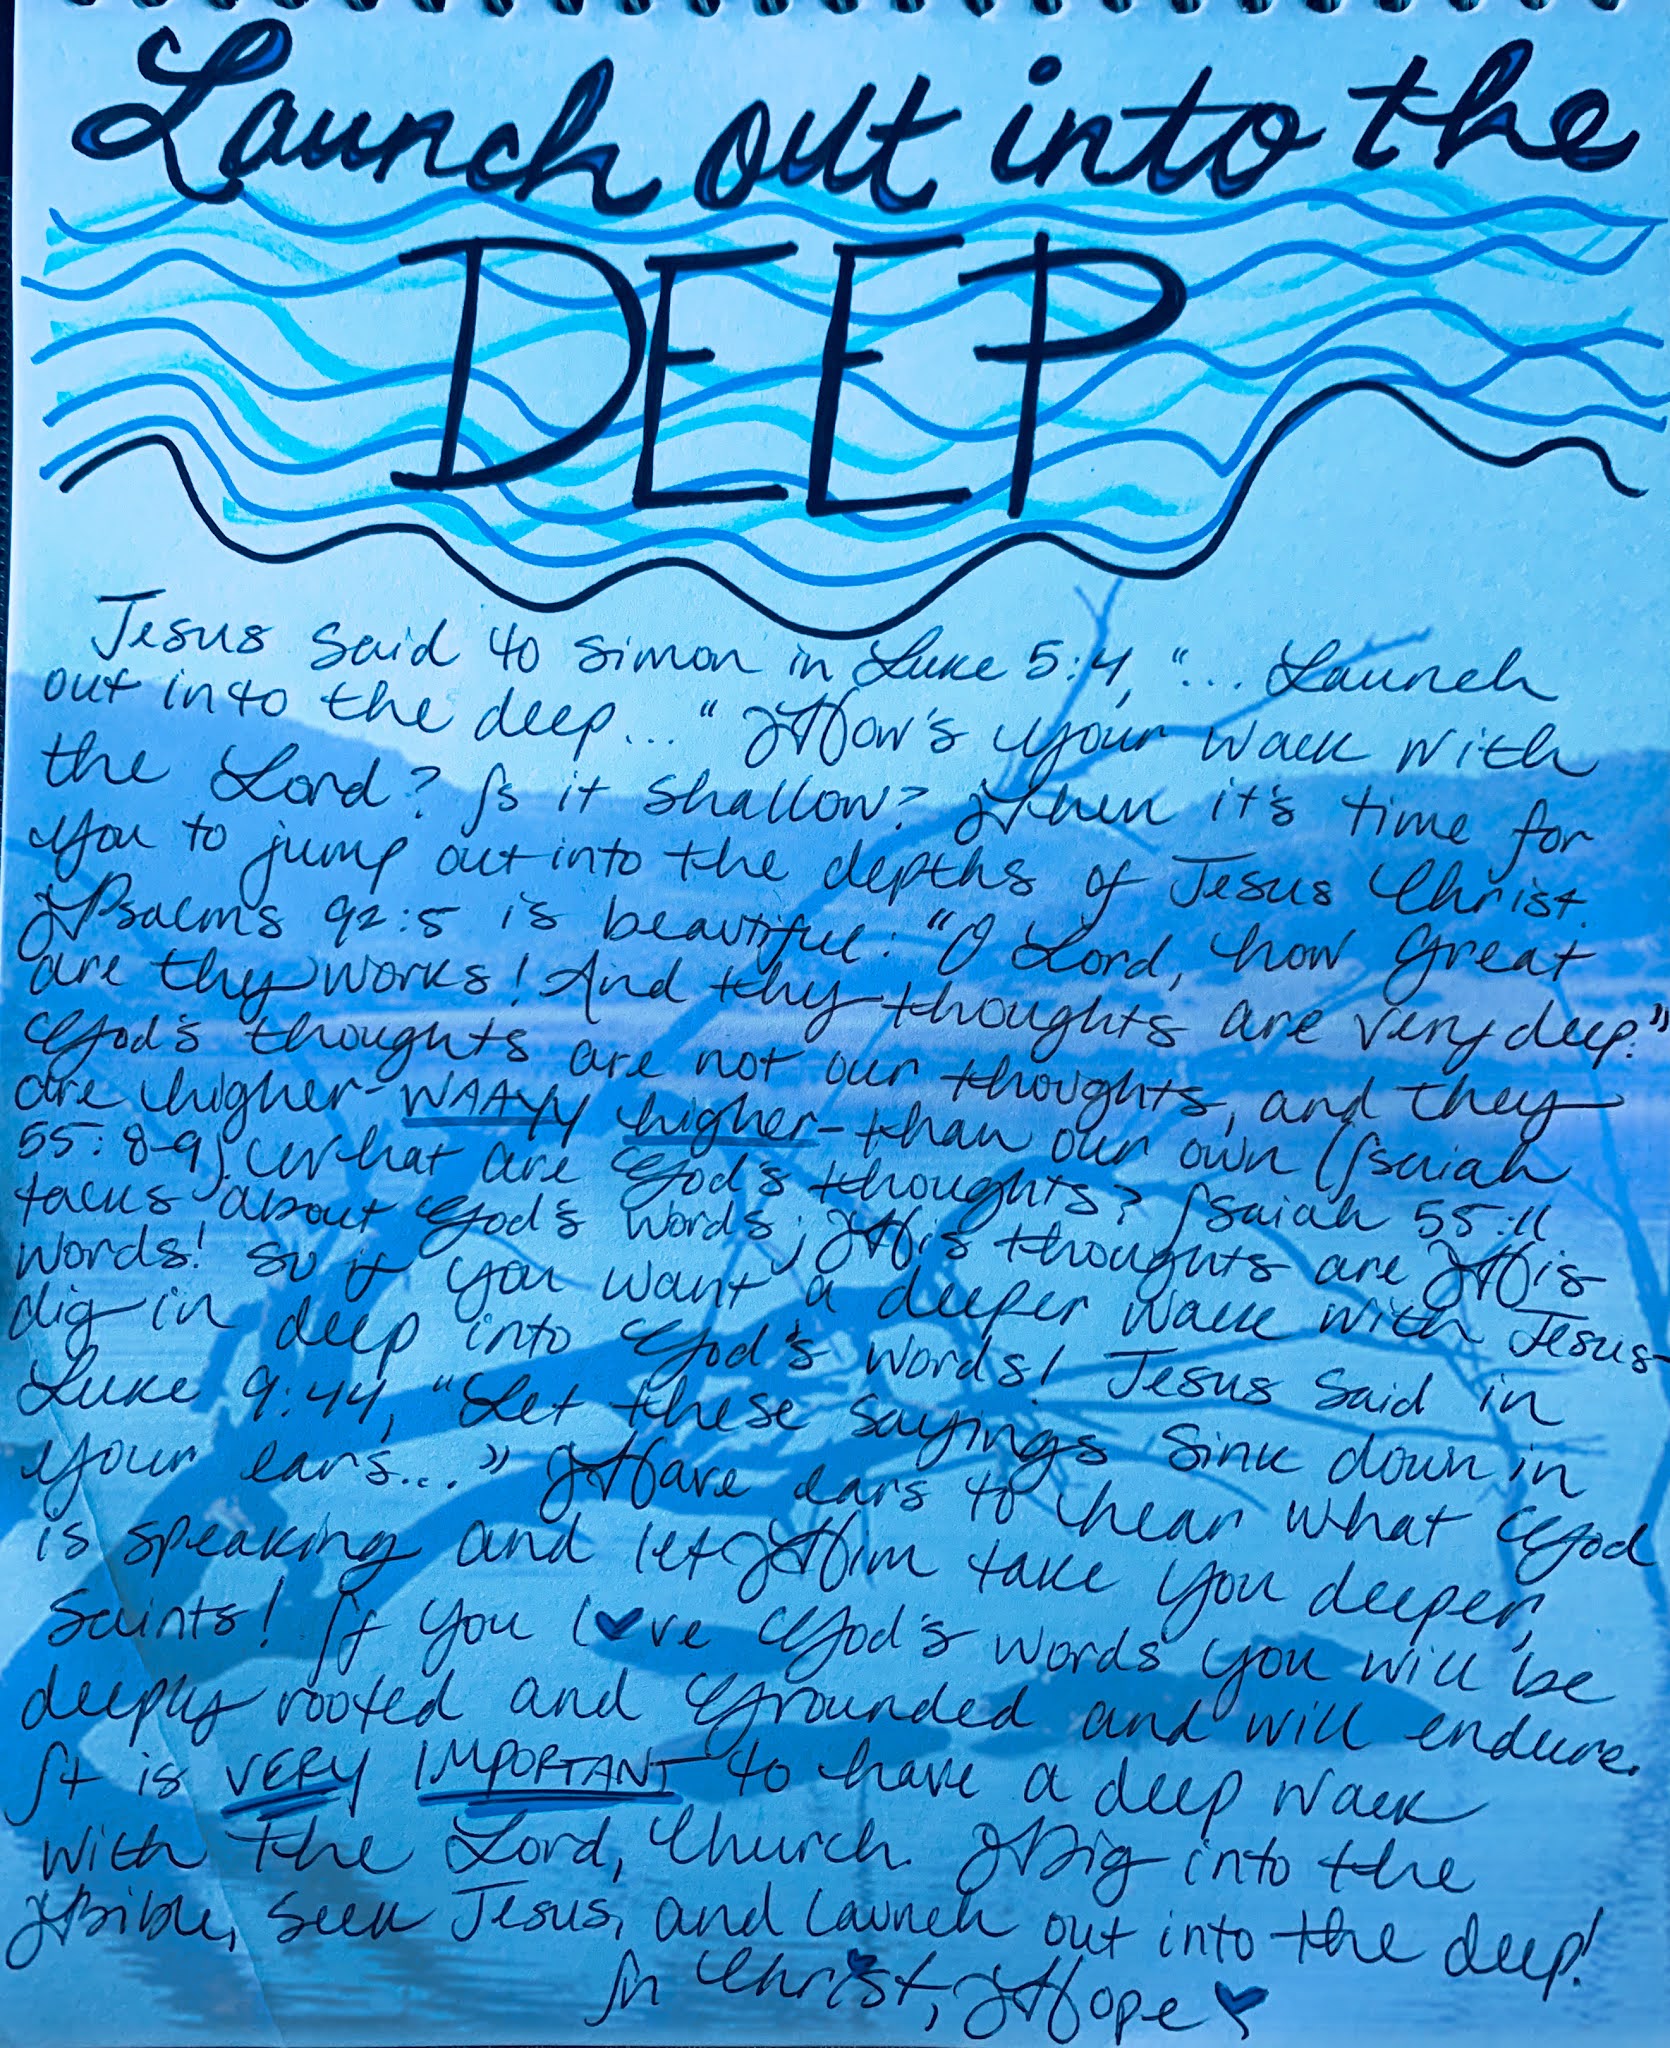 Launch out into the
DEEP
Jesus said to Simon in Luke 5:4, "... Launch
out into the deep..." How's your walk with
the Lord? Is it shallow? Then it's time for
you to jump out into the depths of Jesus Christ.
Psalms 92:5 is beautiful: "O Lord, how great
are thy works! And thy thoughts are very deep."
God's thoughts are not our thoughts, and they
are higher-WAAYY higher-than our own (Isaiah
55:8-9). What are God's thoughts? Isaiah 55:11
talks about God's words; His thoughts are His
words! So if you want a deeper walk with Jesus-
dig in deep into God's words! Jesus said in
Luke 9:44, "Let these sayings sink down in
your ears..." Have ears to hear what God
is speaking and let Him take you deeper,
saints! If you l♥ve God's words you will be
deeply rooted and grounded and will endure.
It is VERY IMPORTANT to have a deep walk
with the Lord, Church. Dig into the
Bible, seek Jesus, and launch out into the deep!
In Christ, Hope ♥